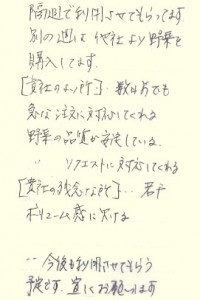 隔週で利用させてもらってます
別の週は他社より野菜を
購入してます。
[貴社のよい所]‥数は少でも
急な注文に対応してくれる
野菜の品質が安定している。
〃 リクエストに対応してくれる
[貴社の残念な所]‥若干
ボリューム感に欠ける
‥今後も利用させてもらう
予定です。宜しくお願いします